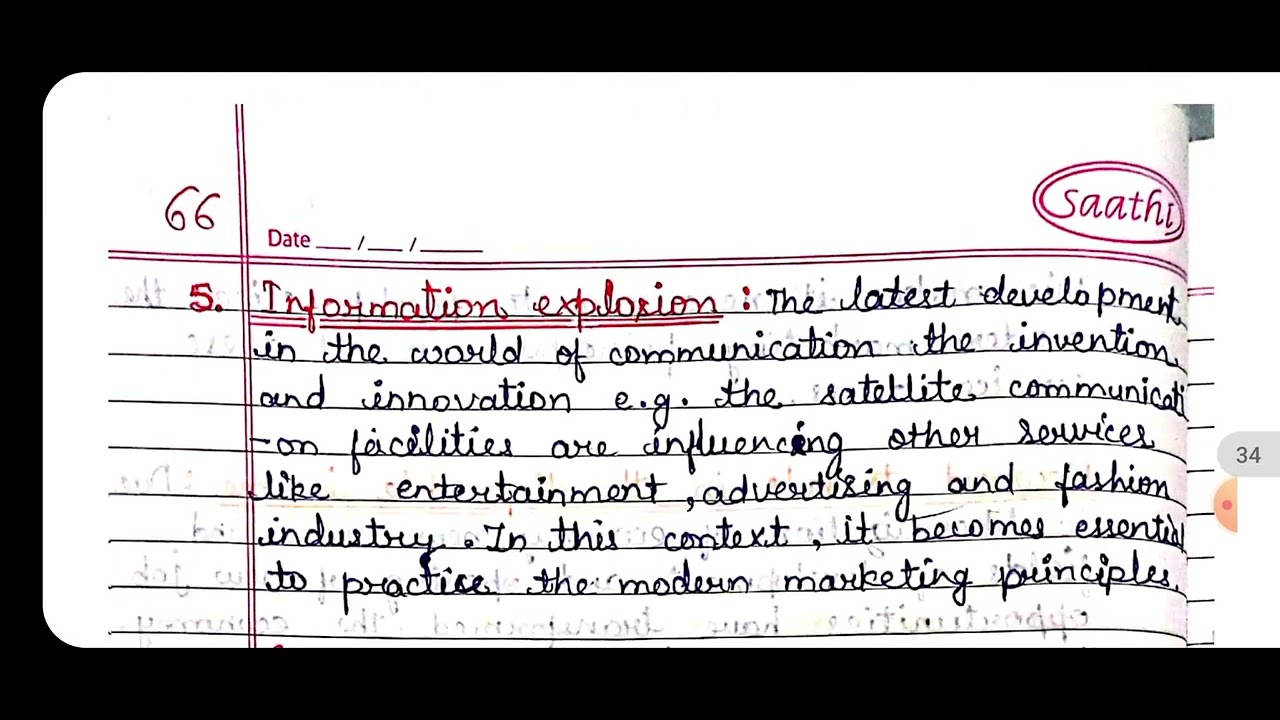 66
Saathi
Date ___ /___ /_____
5. Information explosion : The latest development
in the world of communication the invention
and innovation e.g. the satellite communicati
-on facilities are influencing other services
like entertainment, advertising and fashion
industry. In this context, it becomes essential
to practice the modern marketing principles.
34